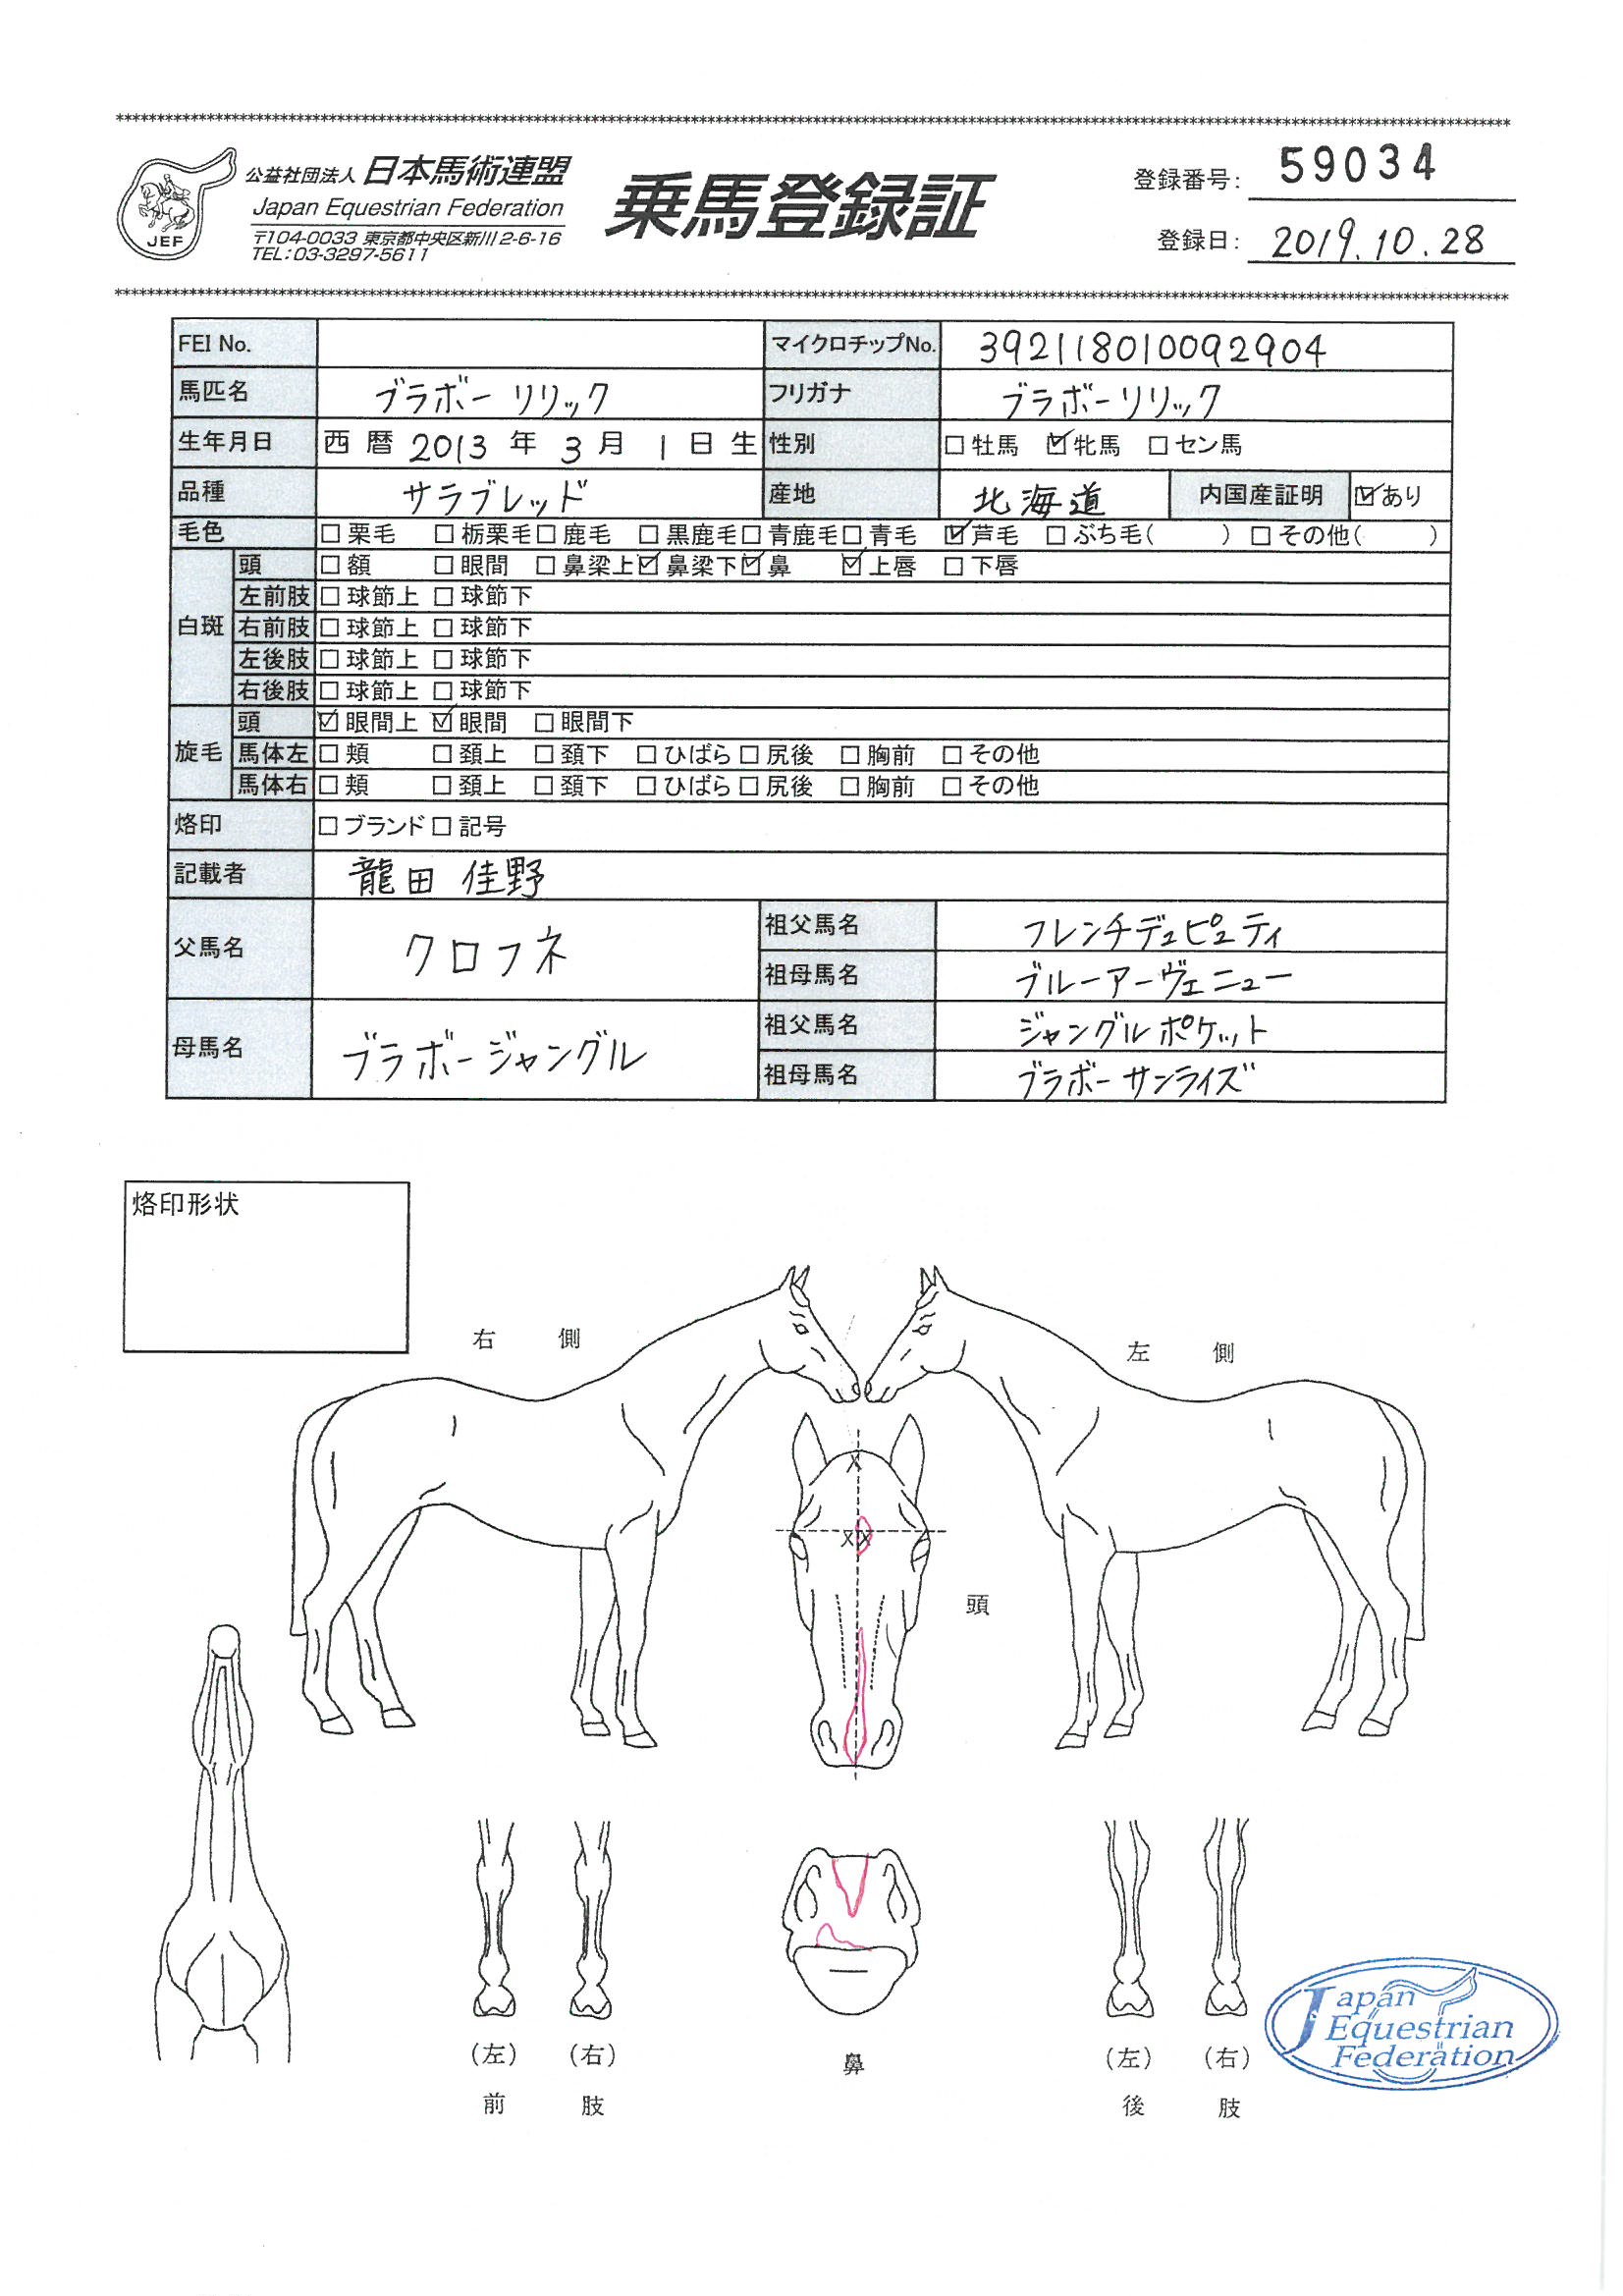 ************************************************************
公益社団法人 日本馬術連盟
Japan Equestrian Federation
〒104-0033 東京都中央区新川2-6-16
TEL:03-3297-5611
JEF
乗馬登録証
登録番号: 59034
登録日: 2019.10.28
************************************************************
FEI No. マイクロチップNo. 392118010092904
馬匹名 ブラボーリリック フリガナ ブラボーリリック
生年月日 西暦 2013 年 3 月 1 日生 性別 □牡馬 ☑牝馬 □セン馬
品種 サラブレッド 産地 北海道 内国産証明 ☑あり
毛色 □栗毛 □栃栗毛 □鹿毛 □黒鹿毛 □青鹿毛 □青毛 ☑芦毛 □ぶち毛( ) □その他( )
白斑 頭 □額 □眼間 □鼻梁上 ☑鼻梁下 ☑鼻 ☑上唇 □下唇
左前肢 □球節上 □球節下
右前肢 □球節上 □球節下
左後肢 □球節上 □球節下
右後肢 □球節上 □球節下
旋毛 頭 ☑眼間上 ☑眼間 □眼間下
馬体左 □頬 □頚上 □頚下 □ひばら □尻後 □胸前 □その他
馬体右 □頬 □頚上 □頚下 □ひばら □尻後 □胸前 □その他
烙印 □ブランド □記号
記載者 龍田 佳野
父馬名 クロフネ 祖父馬名 フレンチデュピュティ
祖母馬名 ブルーアーヴェニュー
母馬名 ブラボージャングル 祖父馬名 ジャングルポケット
祖母馬名 ブラボーサンライズ
烙印形状
右 側
左 側
X
XX
頭
(左) (右)
前 肢
鼻
(左) (右)
後 肢
Japan
Equestrian
Federation